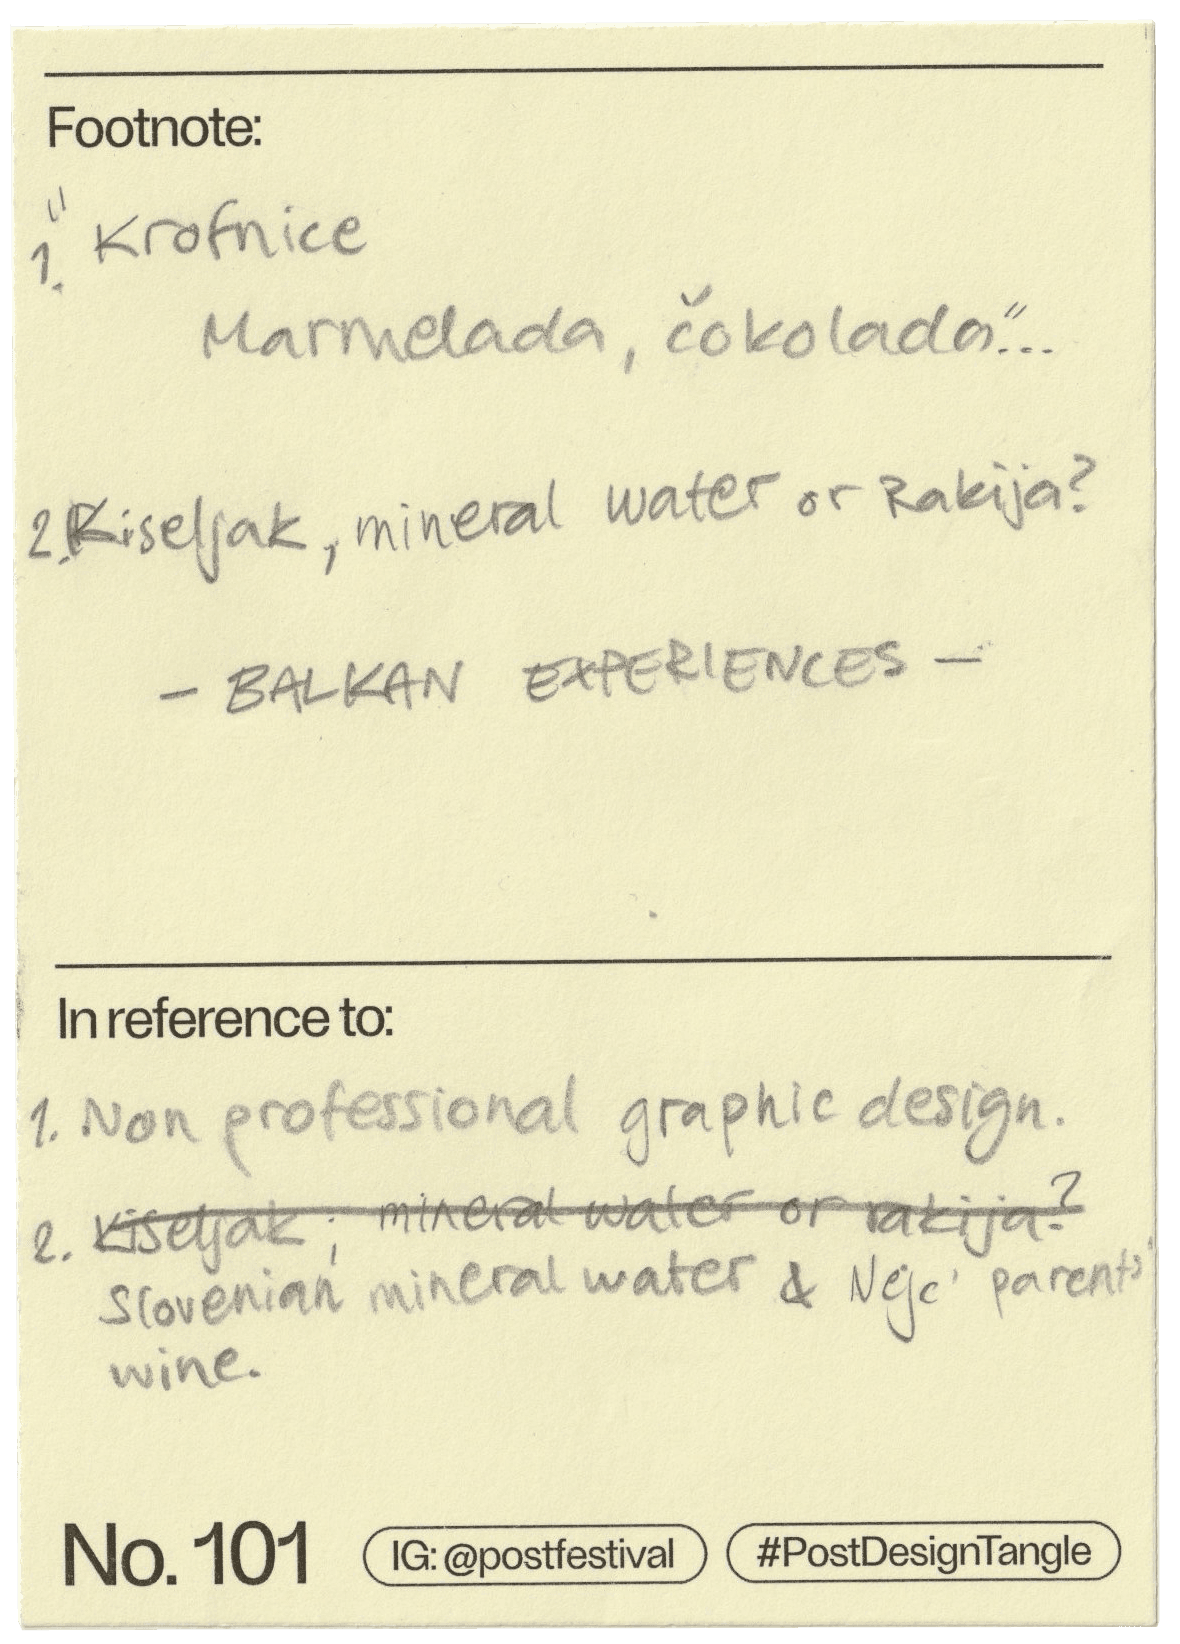 Footnote:
1. "Krofnice
Marmelada, čokolada"...
2. Kiseljak, mineral water or Rakija?
- BALKAN EXPERIENCES -
In reference to:
1. Non professional graphic design.
2. Kiseljak; mineral water or rakija?
Slovenian mineral water & Nejc' parents'
wine.
No. 101 IG: @postfestival #PostDesignTangle